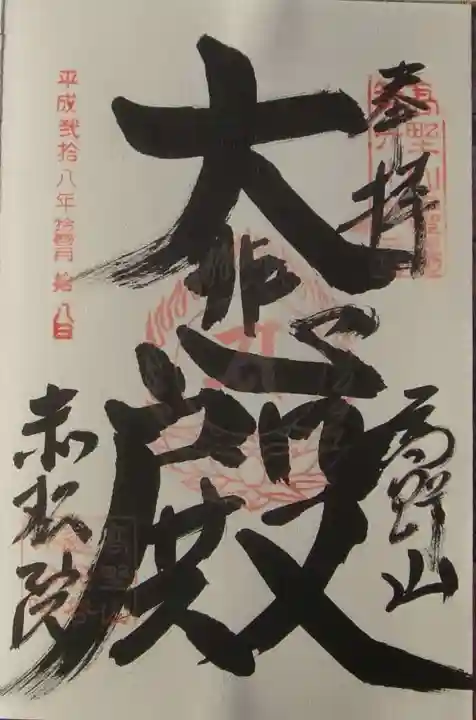 奉拝
高野山
大悲殿
平成弐拾八年拾壱月拾八日
赤松院